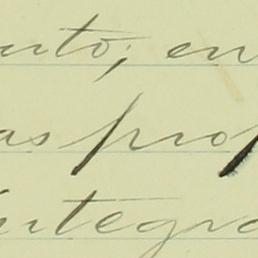 uto; en
as prop
integra